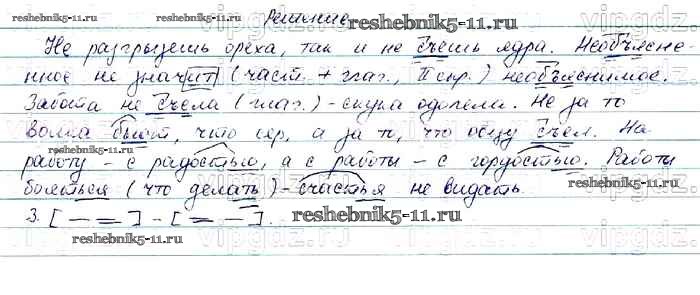 Решение
reshebnik5-11.ru reshebnik5-11.ru reshebnik5-11.ru
Не разгрызешь ореха, так и не съешь ядра. Необъясне-
нное не значит (част. + глаг., II спр.) необъяснимое.
Забота не съела (глаг.) - скука одолела. Не за то
reshebnik5-11.ru
волка бьют, что сер, а за то, что овцу съел. На
работу - с радостью, а с работы - с гордостью. Работы
reshebnik5-11.ru reshebnik5-11.ru
бояться (что делать) - счастья не видать.
3. [— =] - [= —].
reshebnik5-11.ru
reshebnik5-11.ru